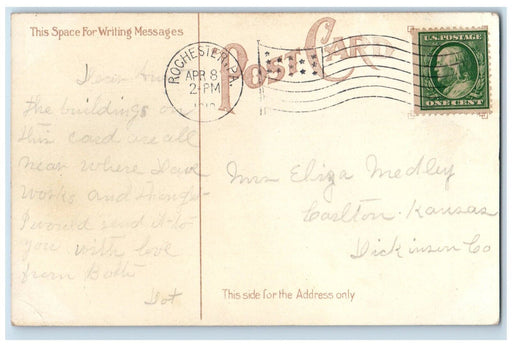 This Space For Writing Messages
POST CARD
ROCHESTER, PA.
APR 8
2-PM
U.S. POSTAGE
ONE CENT
Dear
the buildings on
this card are all
near where Dave
works and thought
I would send it to
you with love
from Both
Dot
Mrs Eliza Medley
Carlton. Kansas
Dickinson Co
This side for the Address only